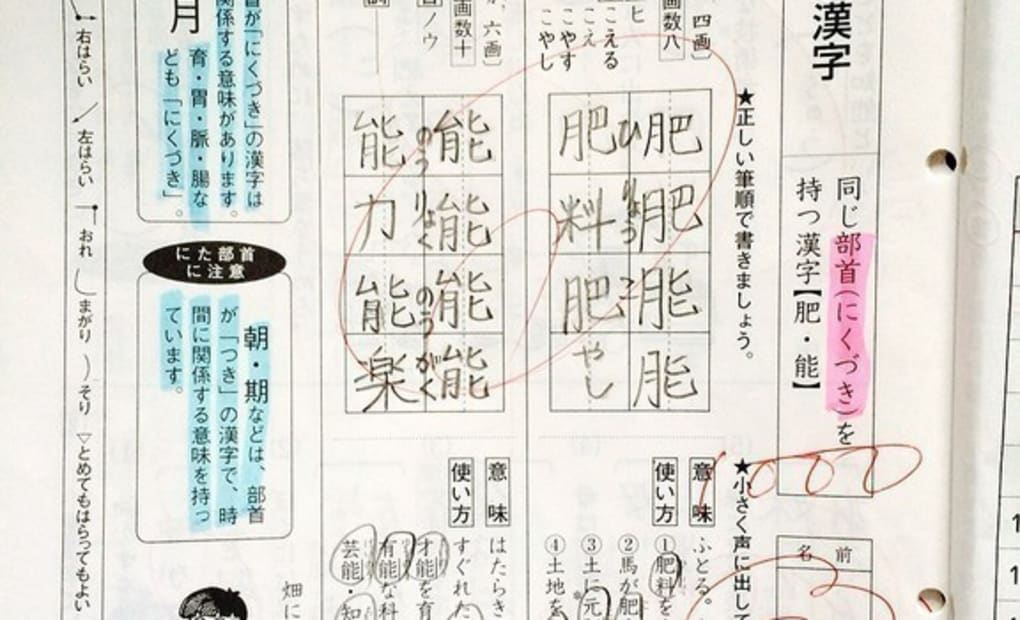 漢字
同じ部首(にくづき)を
持つ漢字【肥・能】
名前
★正しい筆順で書きましょう。
★小さく声に出して
四画)
画数八
ヒ
こえる
こえ
こやす
こやし
肥肥
肥料
肥やし
ひりょう
こ
意味
ふとる。
使い方
①肥料を
②馬が肥
③土に元
④土地を
六画)
画数十
ノウ
能能能能
能力
能楽
のうりょく
のうがく
意味
はたらき
すぐれた
使い方
才能を育
有能な科
芸能・知
畑に
首が「にくづき」の漢字は
関係する意味があります。
月
育・胃・脈・腸な
ども「にくづき」。
にた部首
に注意
朝・期などは、部首
が「つき」の漢字で、時
間に関係する意味を持っ
ています。
右はらい
左はらい
おれ
まがり
そり
▽とめてもはらってもよい